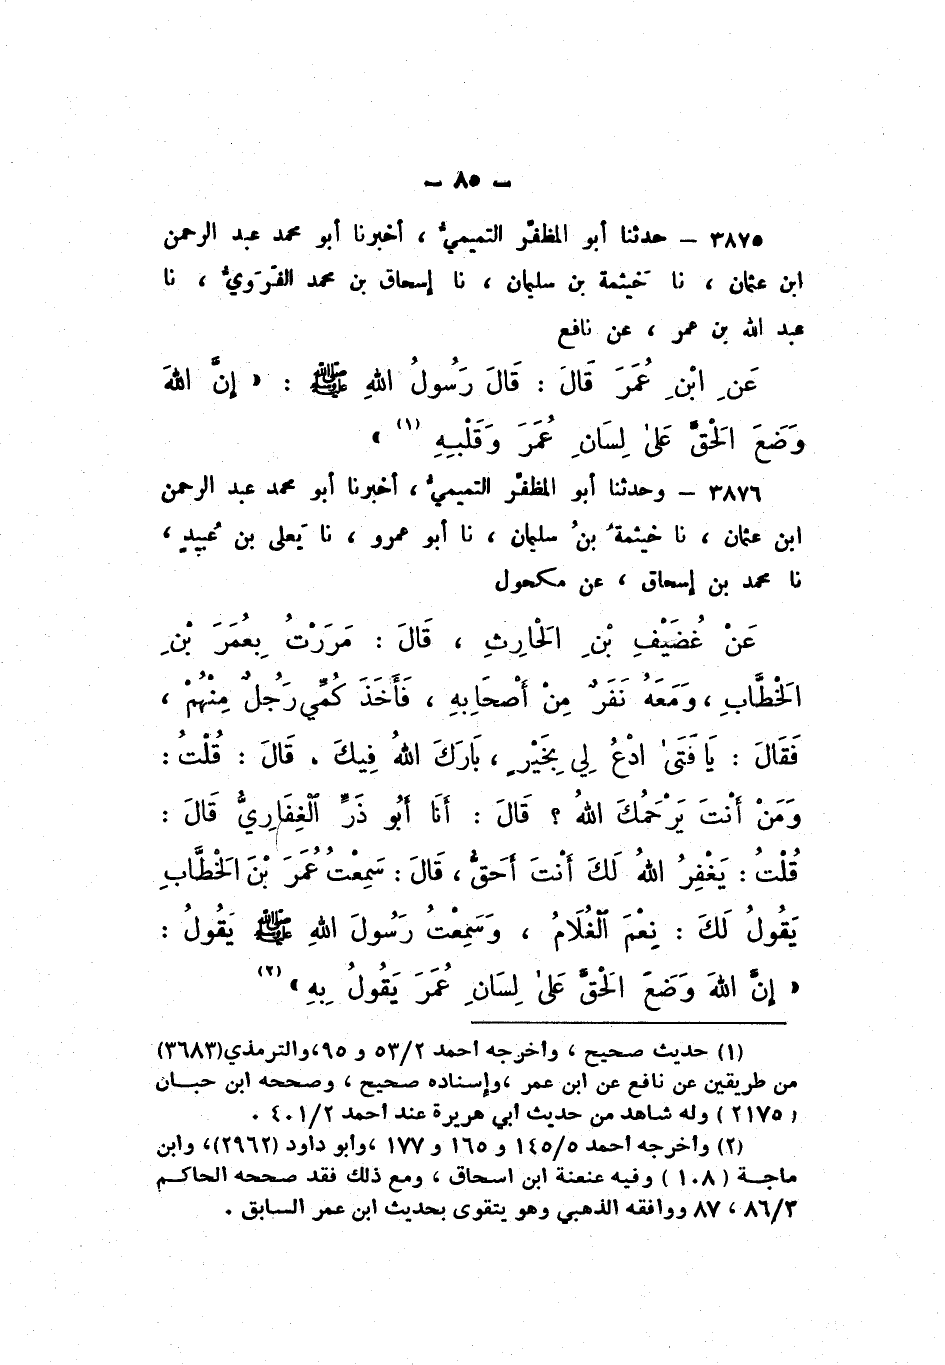 — ٨٥ —
٣٨٧٥ — حدثنا أبو المظفّر التميميُّ ، أخبرنا أبو محمد عبد الرحمن
ابن عثمان ، نا خَيثمة بن سليمان ، نا إسحاق بن محمد الفَرَويُّ ، نا
عبد الله بن عمر ، عن نافع
عَنِ ابْنِ عُمَرَ قَالَ : قَالَ رَسُولُ اللهِ ﷺ : « إِنَّ اللهَ
وَضَعَ الْحَقَّ عَلىٰ لِسَانِ عُمَرَ وَقَلْبِهِ (١) »
٣٨٧٦ — وحدثنا أبو المظفّر التميميُّ ، أخبرنا أبو محمد عبد الرحمن
ابن عثمان ، نا خيثمةُ بنُ سليمان ، نا أبو عمرو ، نا يَعلى بن عُبيدٍ ،
نا محمد بن إسحاق ، عن مكحول
عَنْ غُضَيْفِ بْنِ الْحَارِثِ ، قَالَ : مَرَرْتُ بِعُمَرَ بْنِ
الْخَطَّابِ ، وَمَعَهُ نَفَرٌ مِنْ أَصْحَابِهِ ، فَأَخَذَ كُمِّي رَجُلٌ مِنْهُمْ ،
فَقَالَ : يَا فَتَىٰ ادْعُ لِي بِخَيْرٍ ، بَارَكَ اللهُ فِيكَ . قَالَ : قُلْتُ :
وَمَنْ أَنْتَ يَرْحَمُكَ اللهُ ؟ قَالَ : أَنَا أَبُو ذَرٍّ ٱلْغِفَارِيُّ قَالَ :
قُلْتُ : يَغْفِرُ اللهُ لَكَ أَنْتَ أَحَقُّ ، قَالَ : سَمِعْتُ عُمَرَ بْنَ الْخَطَّابِ
يَقُولُ لَكَ : نِعْمَ ٱلْغُلَامُ ، وَسَمِعْتُ رَسُولَ اللهِ ﷺ يَقُولُ :
« إِنَّ اللهَ وَضَعَ الْحَقَّ عَلىٰ لِسَانِ عُمَرَ يَقُولُ بِهِ » (٢)
(١) حديث صحيح ، وأخرجه أحمد ٥٣/٢ و ٩٥،والترمذي(٣٦٨٣)
من طريقين عن نافع عن ابن عمر ،وإسناده صحيح ، وصححه ابن حبان
(٢١٧٥) وله شاهد من حديث أبي هريرة عند أحمد ٤٠١/٢ .
(٢) وأخرجه أحمد ١٤٥/٥ و ١٦٥ و ١٧٧ ،وأبو داود (٢٩٦٢)، وابن
ماجة (١٠٨) وفيه عنعنة ابن اسحاق ، ومع ذلك فقد صححه الحاكم
٨٦/٣ ، ٨٧ ووافقه الذهبي وهو يتقوى بحديث ابن عمر السابق .